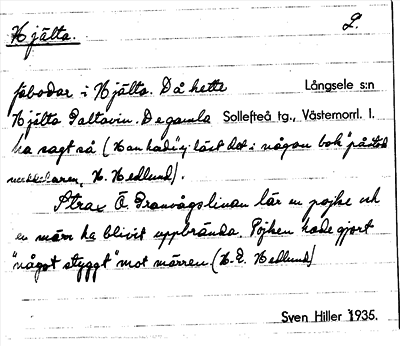 Hjälta. 2.
fäbodar i Hjälta. Då hette Långsele s:n
Hjälta Galtavin. De gamla Sollefteå tg., Västernorrl. l.
ha sagt så (Han hade "ej läst det i någon bok" påstod
H. Hedlund).
Strax Ö. Granvågslinan lär en pojke och
en märr ha blivit uppbrända. Pojken hade gjort
"något styggt" mot märren. (H. E. Hedlund)
Sven Hiller 1935.